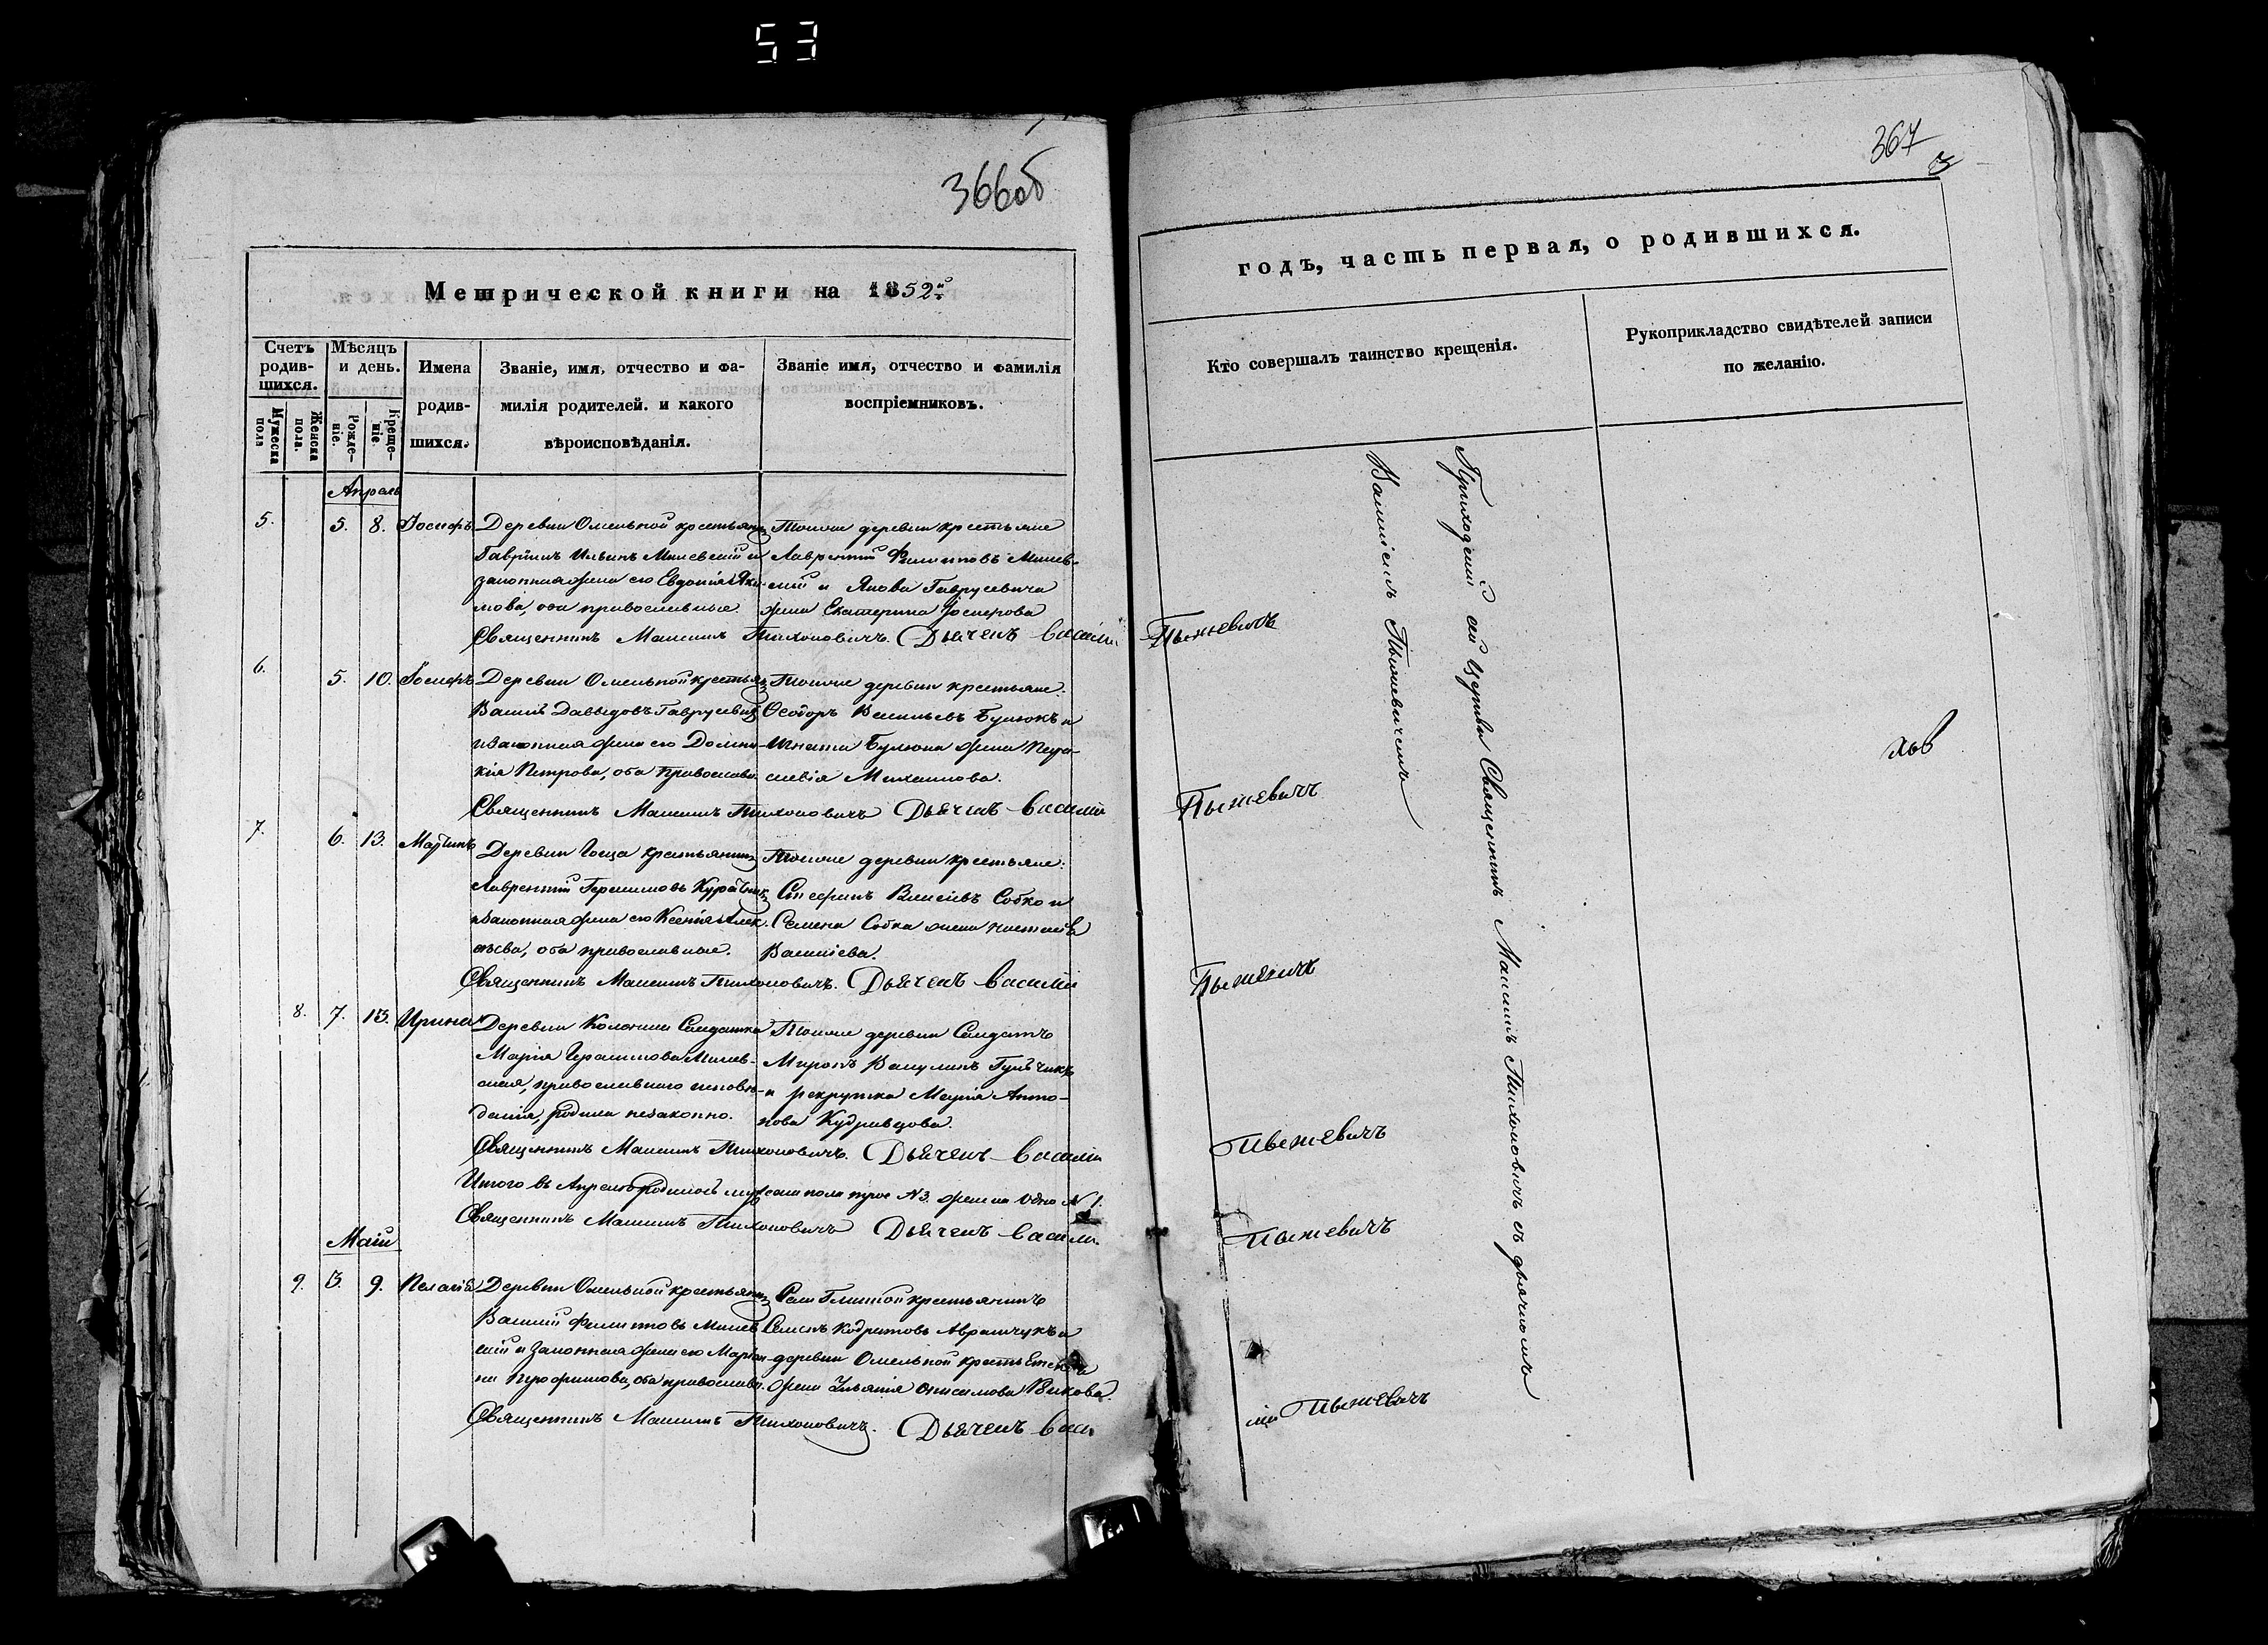 53
366об
Метрической книги на 1852й
Счетъ родив-шихся.
Мужеска пола
Женска пола.
Мѣсяцъ и день.
Рожде-ніе.
Креще-ніе.
Имена родив-шихся.
Званіе, имя, отчество и фа-
милія родителей. и какого
вѣроисповѣданія.
Званіе имя, отчество и фамилія
воспріемниковъ.
Апрель
5. 5. 8. Іосифъ
Деревни Омельной крестьянинъ
Гавріилъ Ильинъ и
законная жена его Евдокія Яки-
мова, оба православные.
Тойже деревни крестьяне
Лаврентій Филиповъ
и Якова Гаврусевича
жена Екатерина Іосифова
Священникъ Максимъ Тихоновичъ. Дьячекъ Василій
6. 5. 10. Іосифъ
Деревни Омельной крестьянинъ
Василь Давыдовъ Гаврусевичъ
и законная жена его Домни-
кія Петрова, оба православн.
Тойже деревни крестьяне:
Ѳеодоръ Васильевъ и
Игнатія жена
Михаилова.
Священникъ Максимъ Тихоновичъ Дьячекъ Василій
7. 6. 13. Мартинъ
Деревни крестьянинъ
Лаврентій Герасимовъ
и законная жена его Ксенія Алек-
сѣева, оба православные.
Тойже деревни крестьяне:
Стефанъ Собко и
Семена Собка жена Настасія
Священникъ Максимъ Тихоновичъ. Дьячекъ Василій
8. 7. 13. Ирина
Деревни Колонии Солдатка
Марія Герасимова
православнаго исповѣ-
данія, родила незаконно.
Тойже деревни Солдатъ
Миронъ
и рекрутка Марія Анто-
нова Кудравцова.
Священникъ Максимъ Тихоновичъ. Дьячекъ Василій
Итого въ Апрелѣ родилось мужеска пола трое №3. женска одно №1.
Священникъ Максимъ Тихоновичъ Дьячекъ Василій
Маій
9. 3. 9. Пелагія
Деревни Омельной крестьянинъ
Василій Филиповъ
и законная жена его Маріан-
на Трофимова, оба православн.
Села крестьянинъ
и
деревни Омельной
жена Ульянія Онисимова
Священникъ Максимъ Тихоновичъ. Дьячекъ Васи
367
3
годъ, часть первая, о родившихся.
Кто совершалъ таинство крещенія.
Рукоприкладство свидѣтелей записи
по желанію.
Приходскій сей церкви Священникъ Максимъ Тихоновичъ съ дьячкомъ
Василіемъ Пыжевичемъ
Пыжевичъ
Пыжевичъ
Пыжевичъ
Пыжевичъ
Пыжевичъ
лій Пыжевичъ